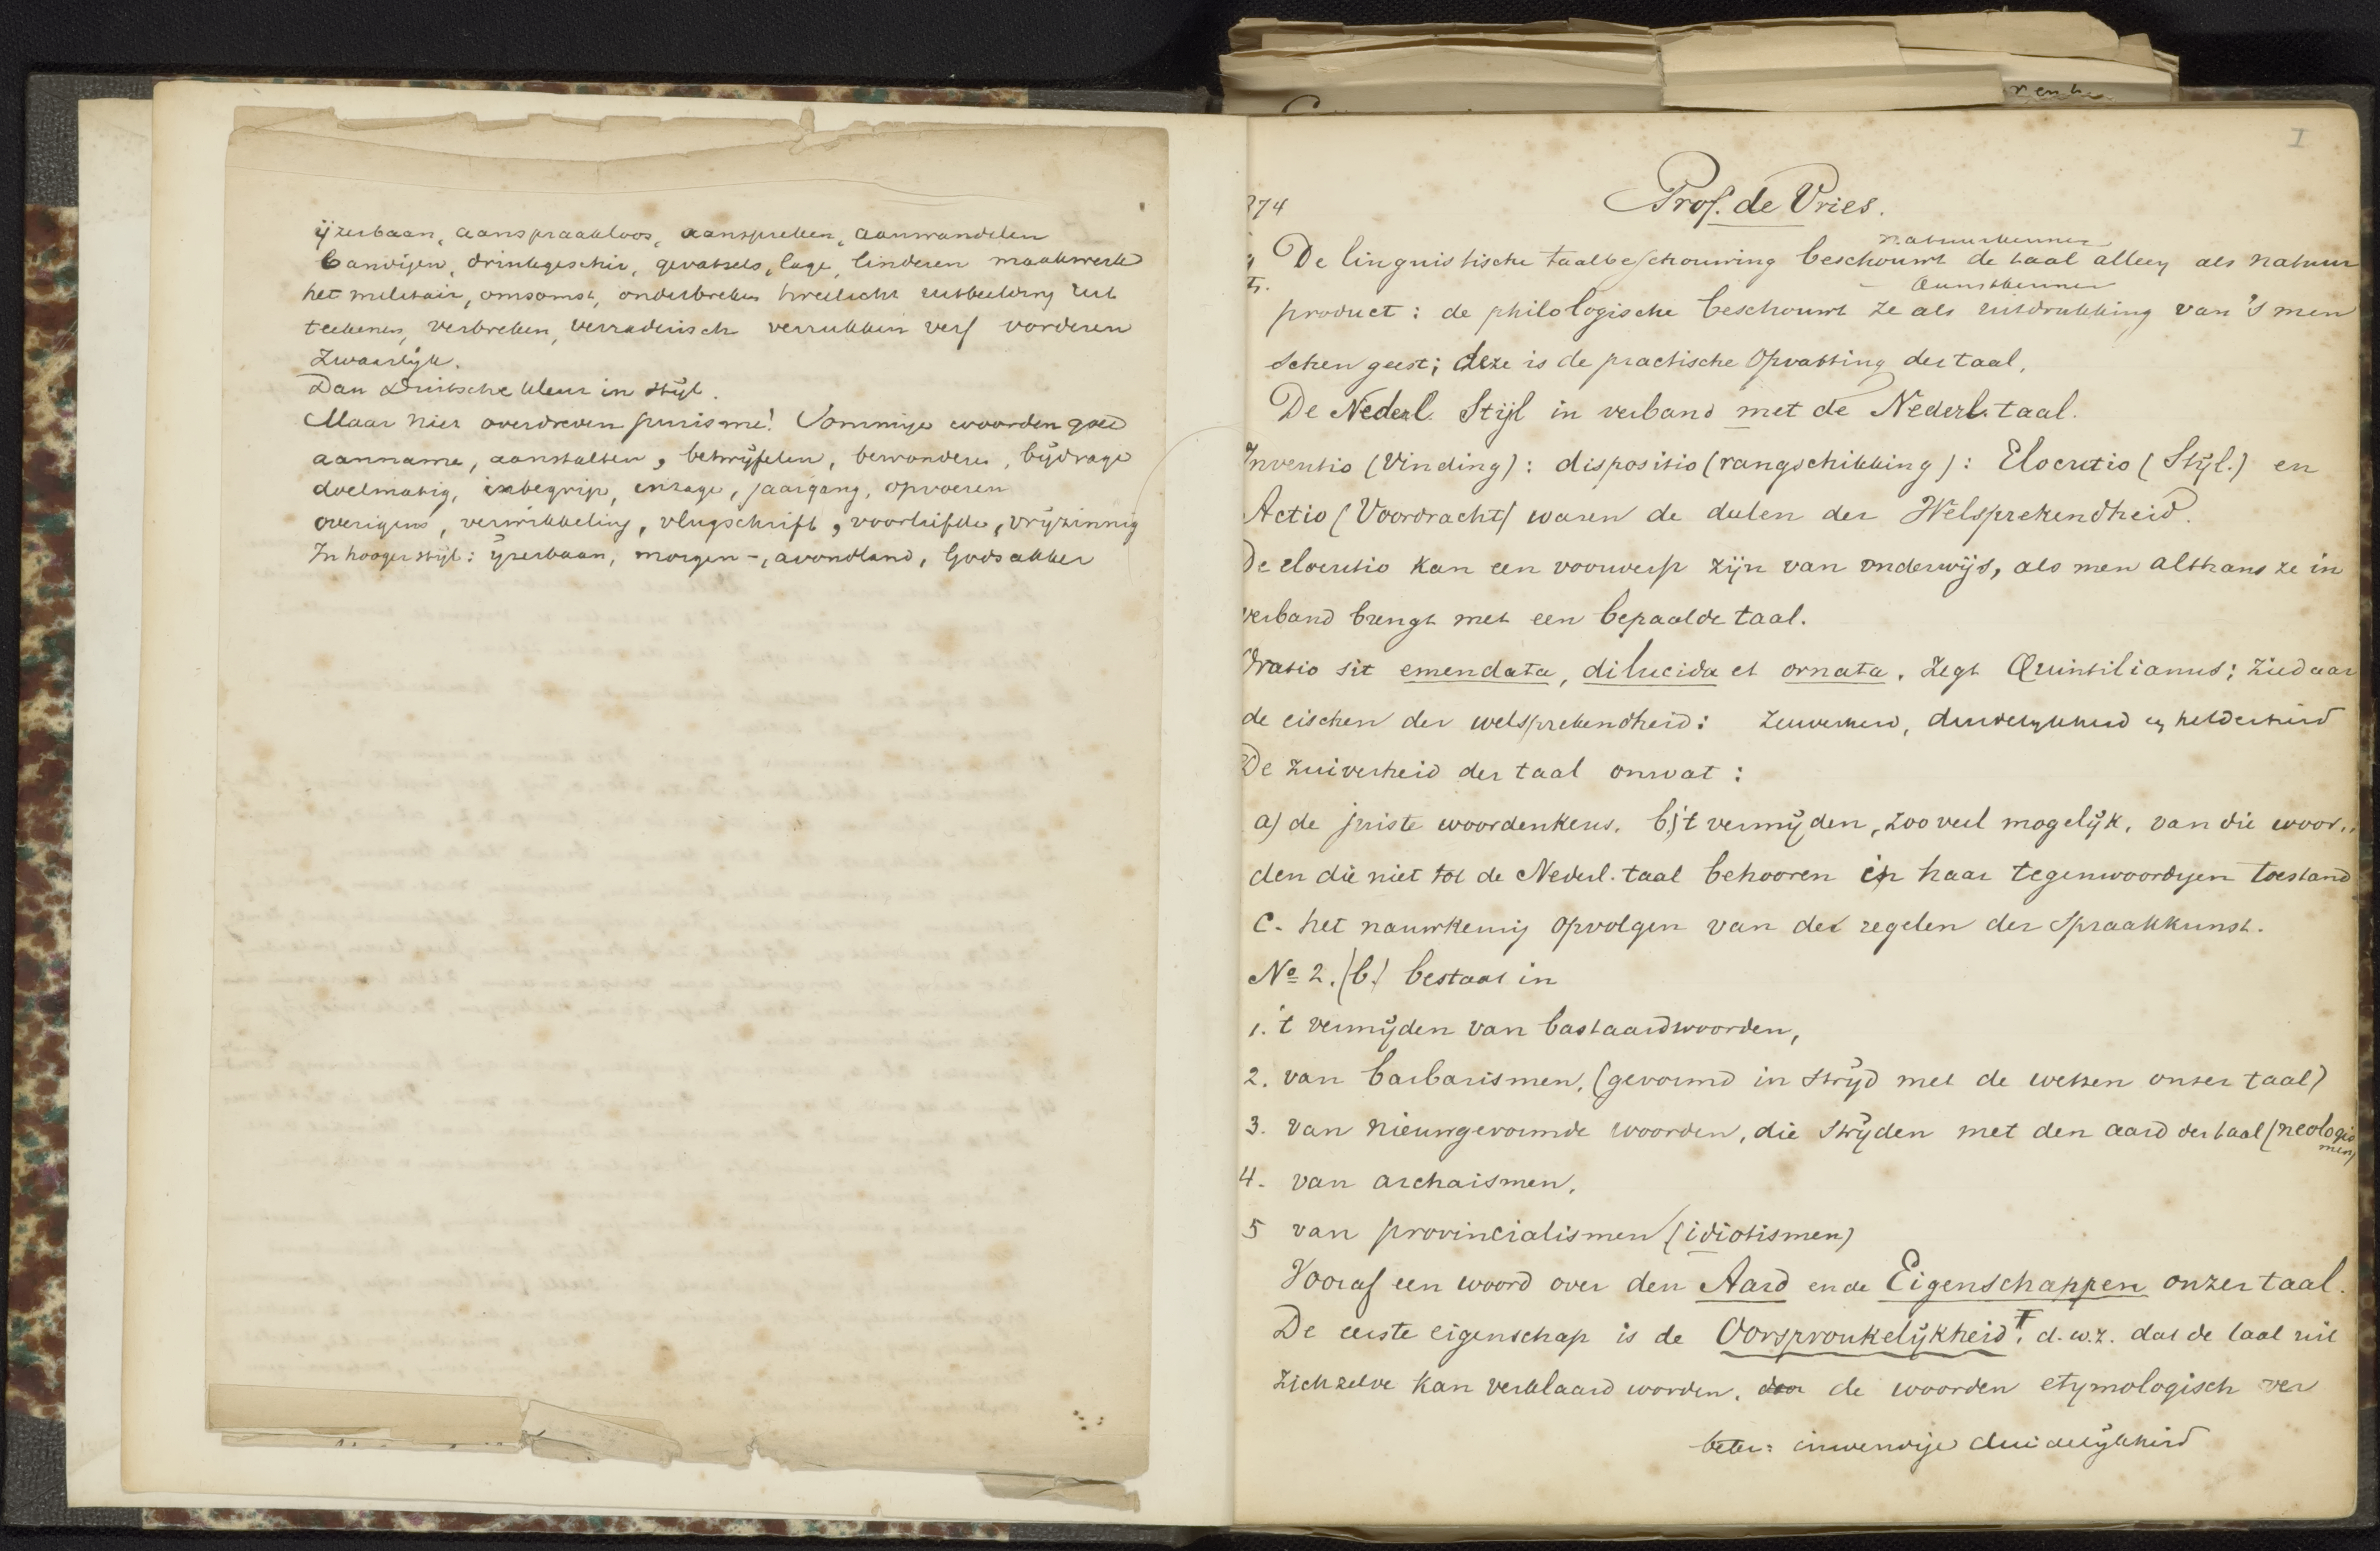 ijzerbaan, aanspraakloos, aanspreken, aanwandelen
bandigen, drinkgeschir, gevatzels, lage, linderen maakwerk
het militair, omsomst, onderbreken tweelicht uitbeelding uit
teekenen, verbreken, verraderisch verrukken verf vorderen
zwaarlijk.
Dan Duitsche kleur in stijl.
Maar hier overdreven purisme! Sommige woorden goed
aanname, aanstalten, betwijfelen, bewonderen, bijdrage
doelmatig, inbegrip, inzage, jaargang, opvoeren
overigens, verwikkeling, vlugschrift, voorliefde, vrijzinnig
In hooger stijl: ijzerbaan, morgen-, avondland, Godsakker
I
Prof. de Vries.
874
natuurkenner
De linguistische taalbeschouwing beschouwt de taal alleen als natuur
kunstkenner
product: de philologische beschouwt ze als uitdrukking van 's men
schen geest; deze is de practische opvatting der taal.
De Nederl. Stijl in verband met de Nederl. taal.
Inventio (Vinding): dispositio (rangschikking): Elocutio (Stijl.) en
Actio (Voordracht) waren de delen der Welsprekendheid.
De elocutio kan een voorwerp zijn van onderwijs, als men althans ze in
verband brengt met een bepaalde taal.
Oratio sit emendata, dilucida et ornata, zegt Quintilianus; ziedaar
de eischen der welsprekendheid: zuiverheid, duidelijkheid en helderheid
De zuiverheid der taal omvat:
a) de juiste woordenkeus. b) 't vermijden, zooveel mogelijk, van die woor..
den die niet tot de Nederl. taal behooren in haar tegenwoordigen toestand
c. het nauwkeurig opvolgen van de regelen der spraakkunst.
No 2. (b.) bestaat in
1. 't vermijden van bastaardwoorden,
2. van barbarismen, (gevormd in strijd met de wetten onzer taal)
3. van nieuwgevormde woorden, die strijden met den aard der taal (neologis
men)
4. van archaismen,
5 van provincialismen (idiotismen)
Vooraf een woord over den Aard en de Eigenschappen onzer taal.
De eerste eigenschap is de Oorspronkelijkheid, d.w.z. dat de taal uit
zich zelve kan verklaard worden, door de woorden etymologisch ver
beter: inwendige duidelijkheid